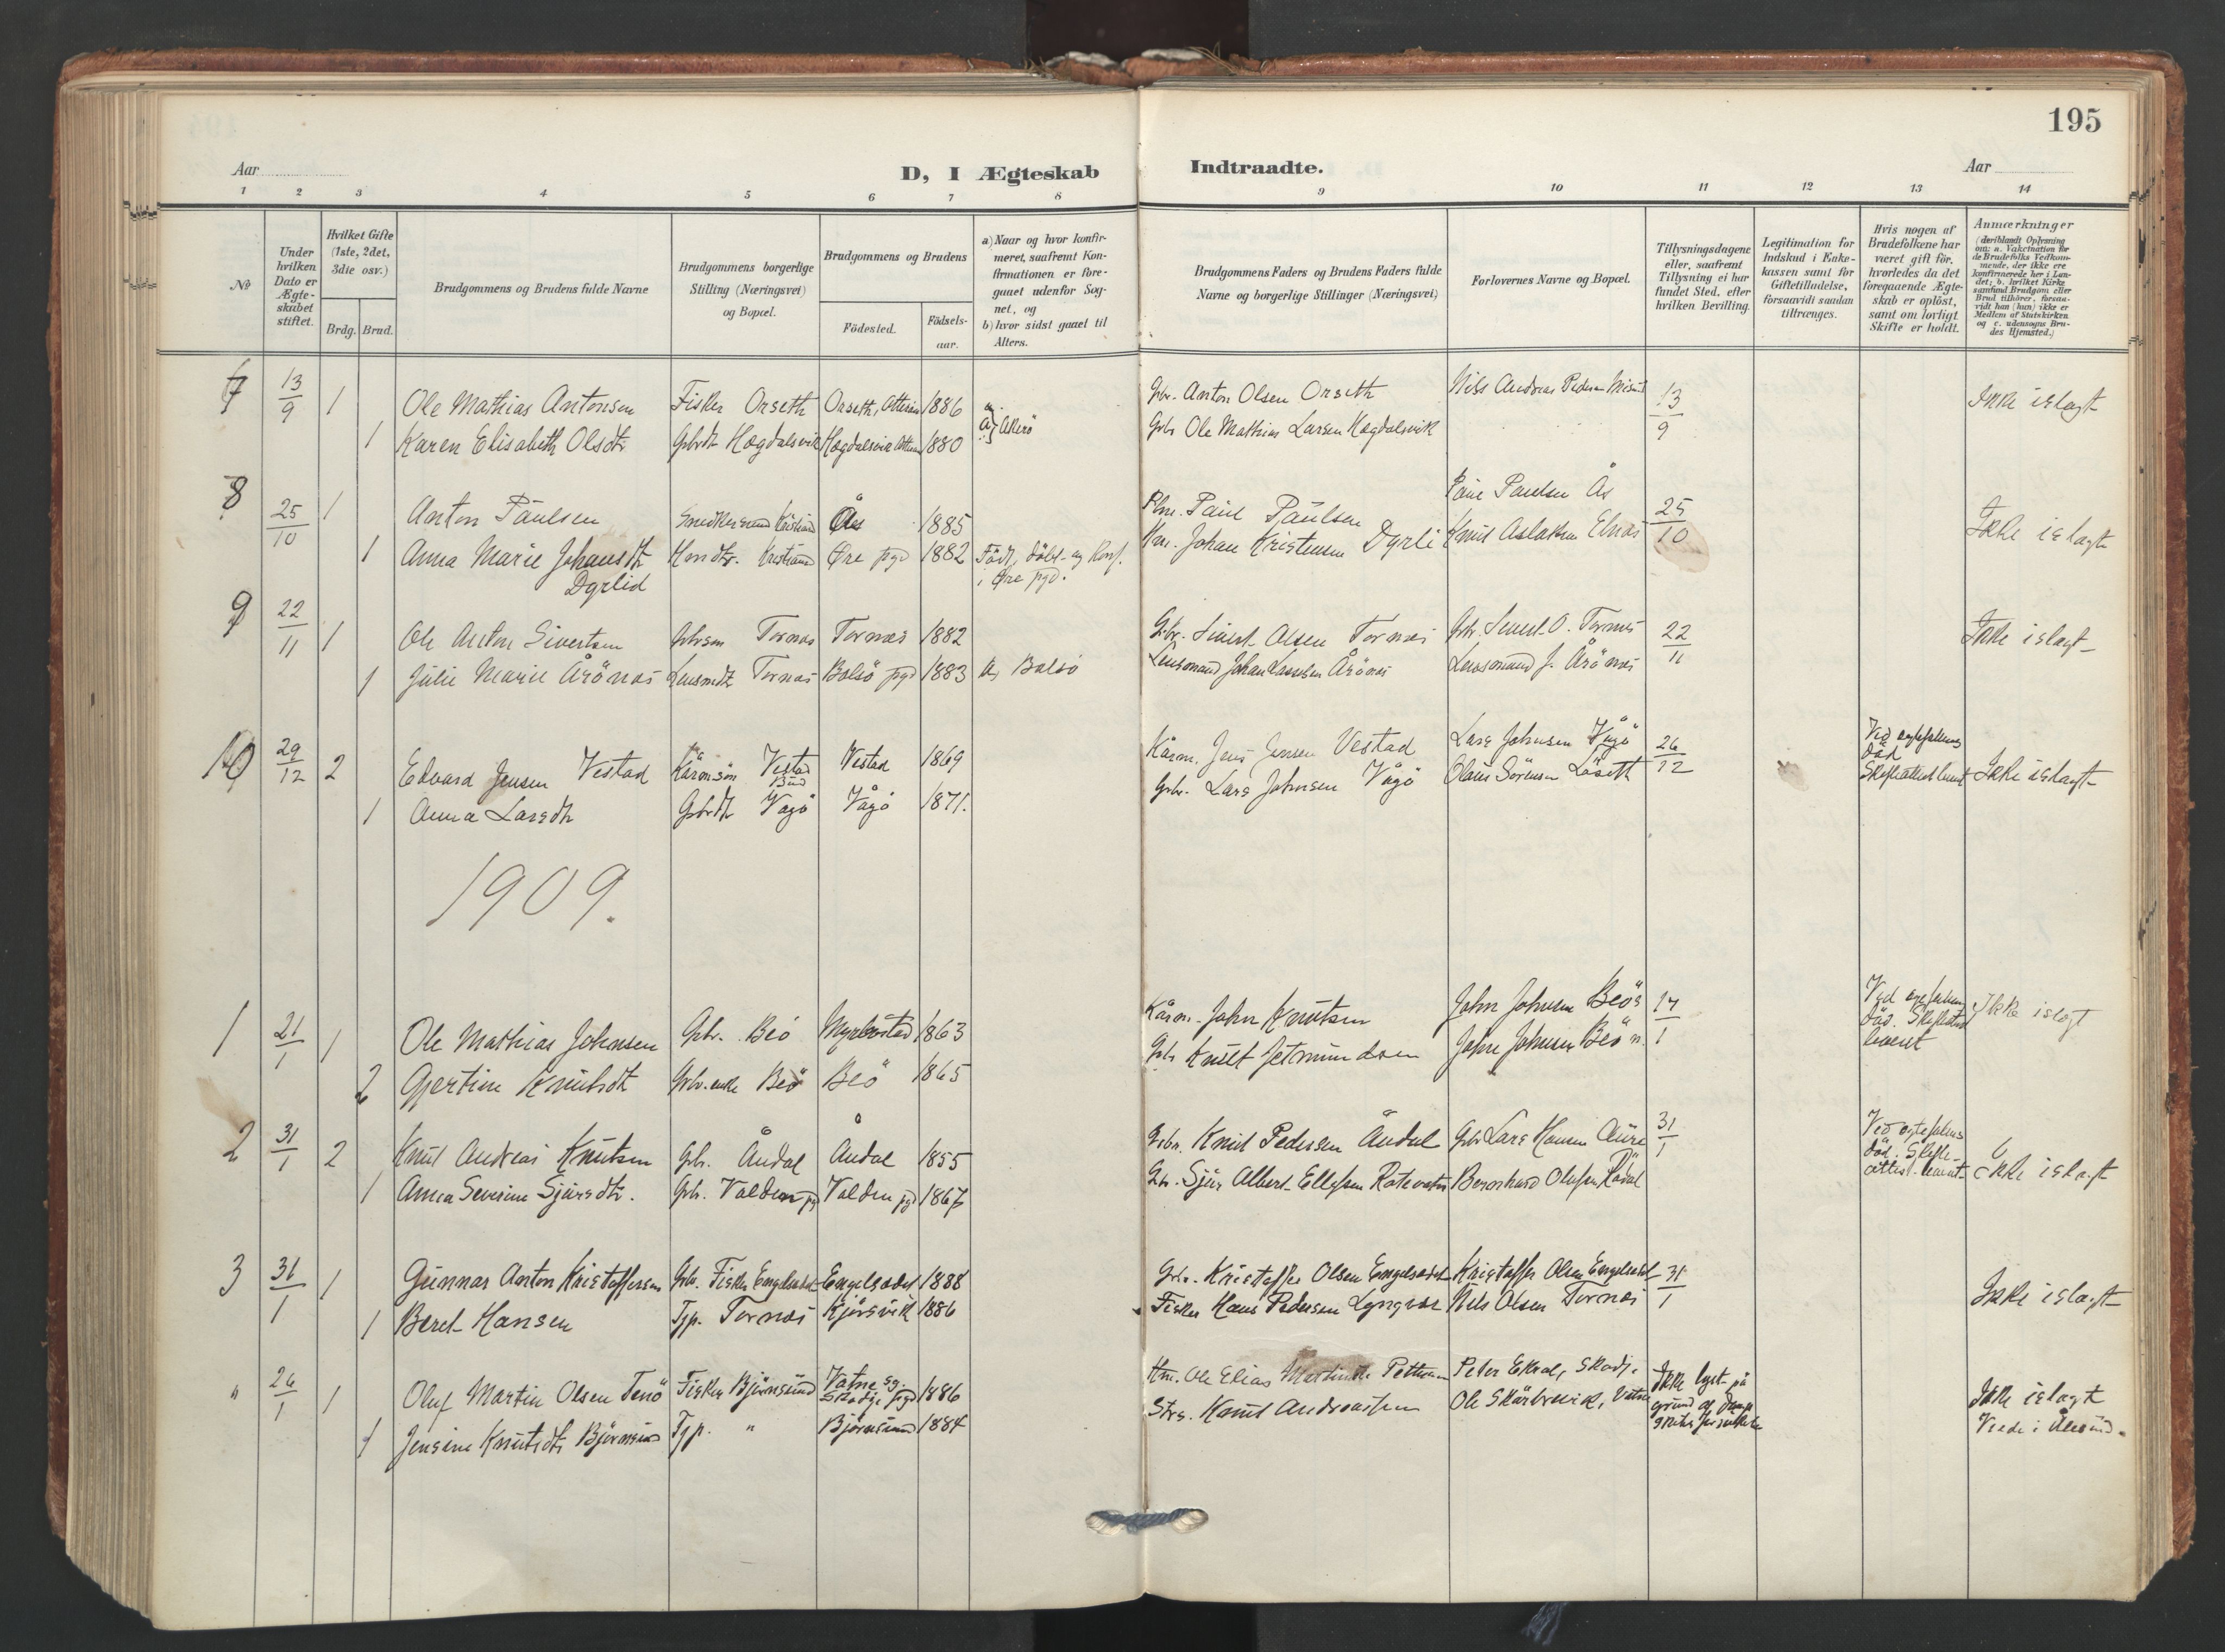 195
Aar
D, I Ægteskab Indtraadte.
Aar
1 2 3 4 5 6 7 8 9 10 11 12 13 14
№
Under hvilken Dato er Ægteskabet stiftet.
Hvilket Gifte (1ste, 2det, 3die osv.)
Brdg. Brud.
Brudgommens og Brudens fulde Navne
Brudgommens borgerlige Stilling (Næringsvei) og Bopæl.
Brudgommens og Brudens
Födested. Födselsaar.
a) Naar og hvor konfirmeret, saafremt Konfirmationen er foregaaet udenfor Sognet, og
b) hvor sidst gaaet til Alters.
Brudgommens Faders og Brudens Faders fulde Navne og borgerlige Stillinger (Næringsvei)
Forlovernes Navne og Bopæl.
Tillysningsdagene eller, saafremt Tillysning ei har fundet Sted, efter hvilken Bevilling.
Legitimation for Indskud i Enkekassen samt for Giftetilladelse, forsaavidt saadan tiltrænges.
Hvis nogen af Brudefolkene har været gift för, hvorledes da det foregaaende Ægteskab er oplöst, samt om lovligt Skifte er holdt.
Anmærkninger (deriblandt Oplysning om: a. Vakcination for de Brudefolks Vedkommende, der ikke ere konfirmerede her i Landet; b. hvilket Kirkesamfund Brudgom eller Brud tilhörer, forsaavidt han (hun) ikke er Medlem af Statskirken og c. udensogns Brudes Hjemsted.)
7 13/9 1 Ole Mathias Antonsen Fisker Orseth Orseth, 1886 Gbr. Anton Olsen Orseth Nils Andreas Pedersen 13/9 Ikke islagt
1 Karen Elisabeth Olsdtr Gbrdt Hægdalsvik Hægdalsvik 1880 a) Akerö Gbr Ole Mathias Larsen Hægdalsvik
8 25/10 1 Anton Paulsen Kristiansund Ås 1885 Paul Paulsen Paul Paulsen Ås 25/10 Ikke islagt
1 Anna Marie Johansdtr Kristiansund Øre pgd 1882 Födt, döbt og konf. Johan Kristensen Dyrli Knut Aslaksen Elnæs
Dyrlid i Øre pgd.
9 22/11 1 Ole Anton Sivertsen Gbrsøn Tornæs Tornæs 1882 Gbr. Sivert Olsen Tornæs Gbr. Sivert O. Tornæs 22/11 Ikke islagt
1 Julie Marie Årönæs Lensmdt Tornæs Bolsö pgd 1883 a) Bolsö Lensmand Johan Lassesen Årönæs Lensmand J. Årönæs
10 29/12 2 Edvard Jensen Vestad Kårmsön Vestad Bud Vestad 1869 Kårm. Jens Jensen Vestad Lars Johnsen Vågö 26/12 Ved ægtefælles död Skifteattest levert Ikke islagt
1 Anna Larsdtr Gbrdt Vågö Vågö 1871. Gbr. Lars Johnsen Vågö Olaus Sörensen Löseth
1909.
1 21/1 1 Ole Mathias Johnsen Gbr. Beö Myrbostad 1863 Kårm. John Knutsen John Johnsen Beö 17/1 Ved ægtefælles död. Skifteattest levert Ikke islagt
2 Gjertine Knutsdtr Gbr.enke Beö Beö 1865 Gbr Knut Jetmundsen John Johnsen Beö n.
2 31/1 2 Knut Andreas Knutsen Gbr. Åndal Åndal 1855 Gbr. Knut Pedersen Åndal Gbr Lars Hansen Aure 31/1 Ved ægtefælles död. Skifteattest levert Ikke islagt
1 Anna Severine Sjursdtr. Gbr. Volden pgd Volden pgd 1867 Gbr. Sjur Albert Ellefsen Rotevatn Bernhard Olufsen Rödal
3 31/1 1 Gunnar Anton Kristoffersen Gbr. Fisker Engelsædet Engelsædet 1888 Gbr. Kristoffer Olsen Engelsædet Kristoffer Olsen Engelsædet 31/1 Ikke islagt
1 Beret Hansen Tjp. Tornæs Kjörsvik 1886 Fisker Hans Pedersen Lyngvær Nils Olsen Tornæs
" 26/1 1 Oluf Martin Olsen Tenö Fisker Björnsund Vatne sg. Skodje pgd 1886 Hm. Ole Elias Martinsen Peter Ekrol, Skodje Ikke lyst på grund af Ikke islagt
1 Jensine Knutsdtr Björnsund Tjp. " Björnsund 1884 Strs. Knut Andreassen Ole Skårbrevik, Vatne Viede i Ålesund.